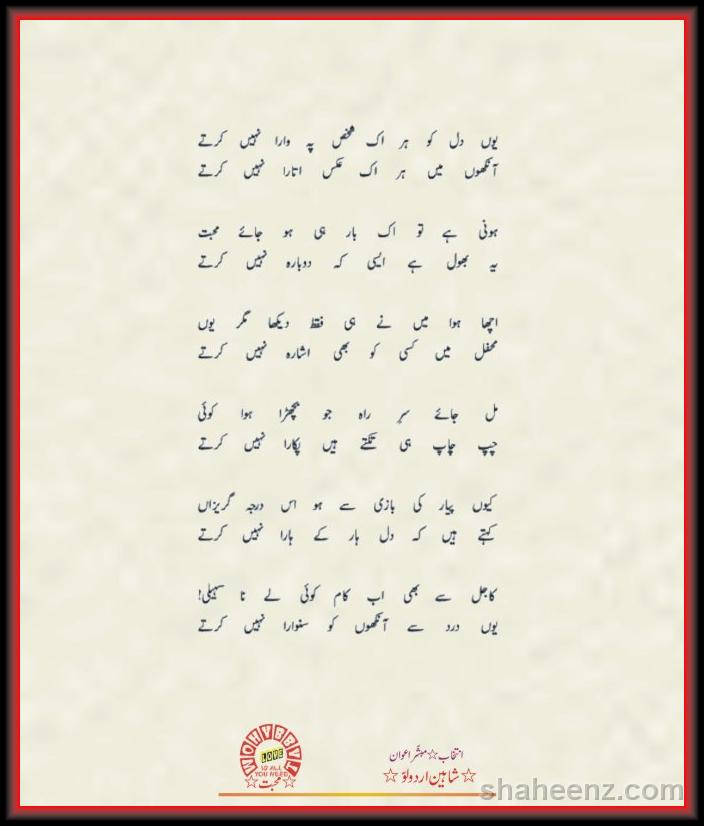 یوں دل کو ہر اک شخص پہ وارا نہیں کرتے
آنکھوں میں ہر اک عکس اتارا نہیں کرتے
ہونی ہے تو اک بار ہی ہو جائے محبت
یہ بھول ہے ایسی کہ دوبارہ نہیں کرتے
اچھا ہوا میں نے ہی فقط دیکھا مگر یوں
محفل میں کسی کو بھی اشارہ نہیں کرتے
مل جائے سرِ راہ جو بچھڑا ہوا کوئی
چپ چاپ ہی تکتے ہیں پکارا نہیں کرتے
کیوں پیار کی بازی سے ہو اس درجہ گریزاں
کہتے ہیں کہ دل ہار کے ہارا نہیں کرتے
کاجل سے بھی اب کام کوئی لے نا سہیلی!
یوں درد سے آنکھوں کو سنوارا نہیں کرتے
انتخاب☆مبشر اعوان
☆شاہین اردو لوَ☆
LOVE
IS ALL
YOU NEED
☆محبت☆
shaheenz.com